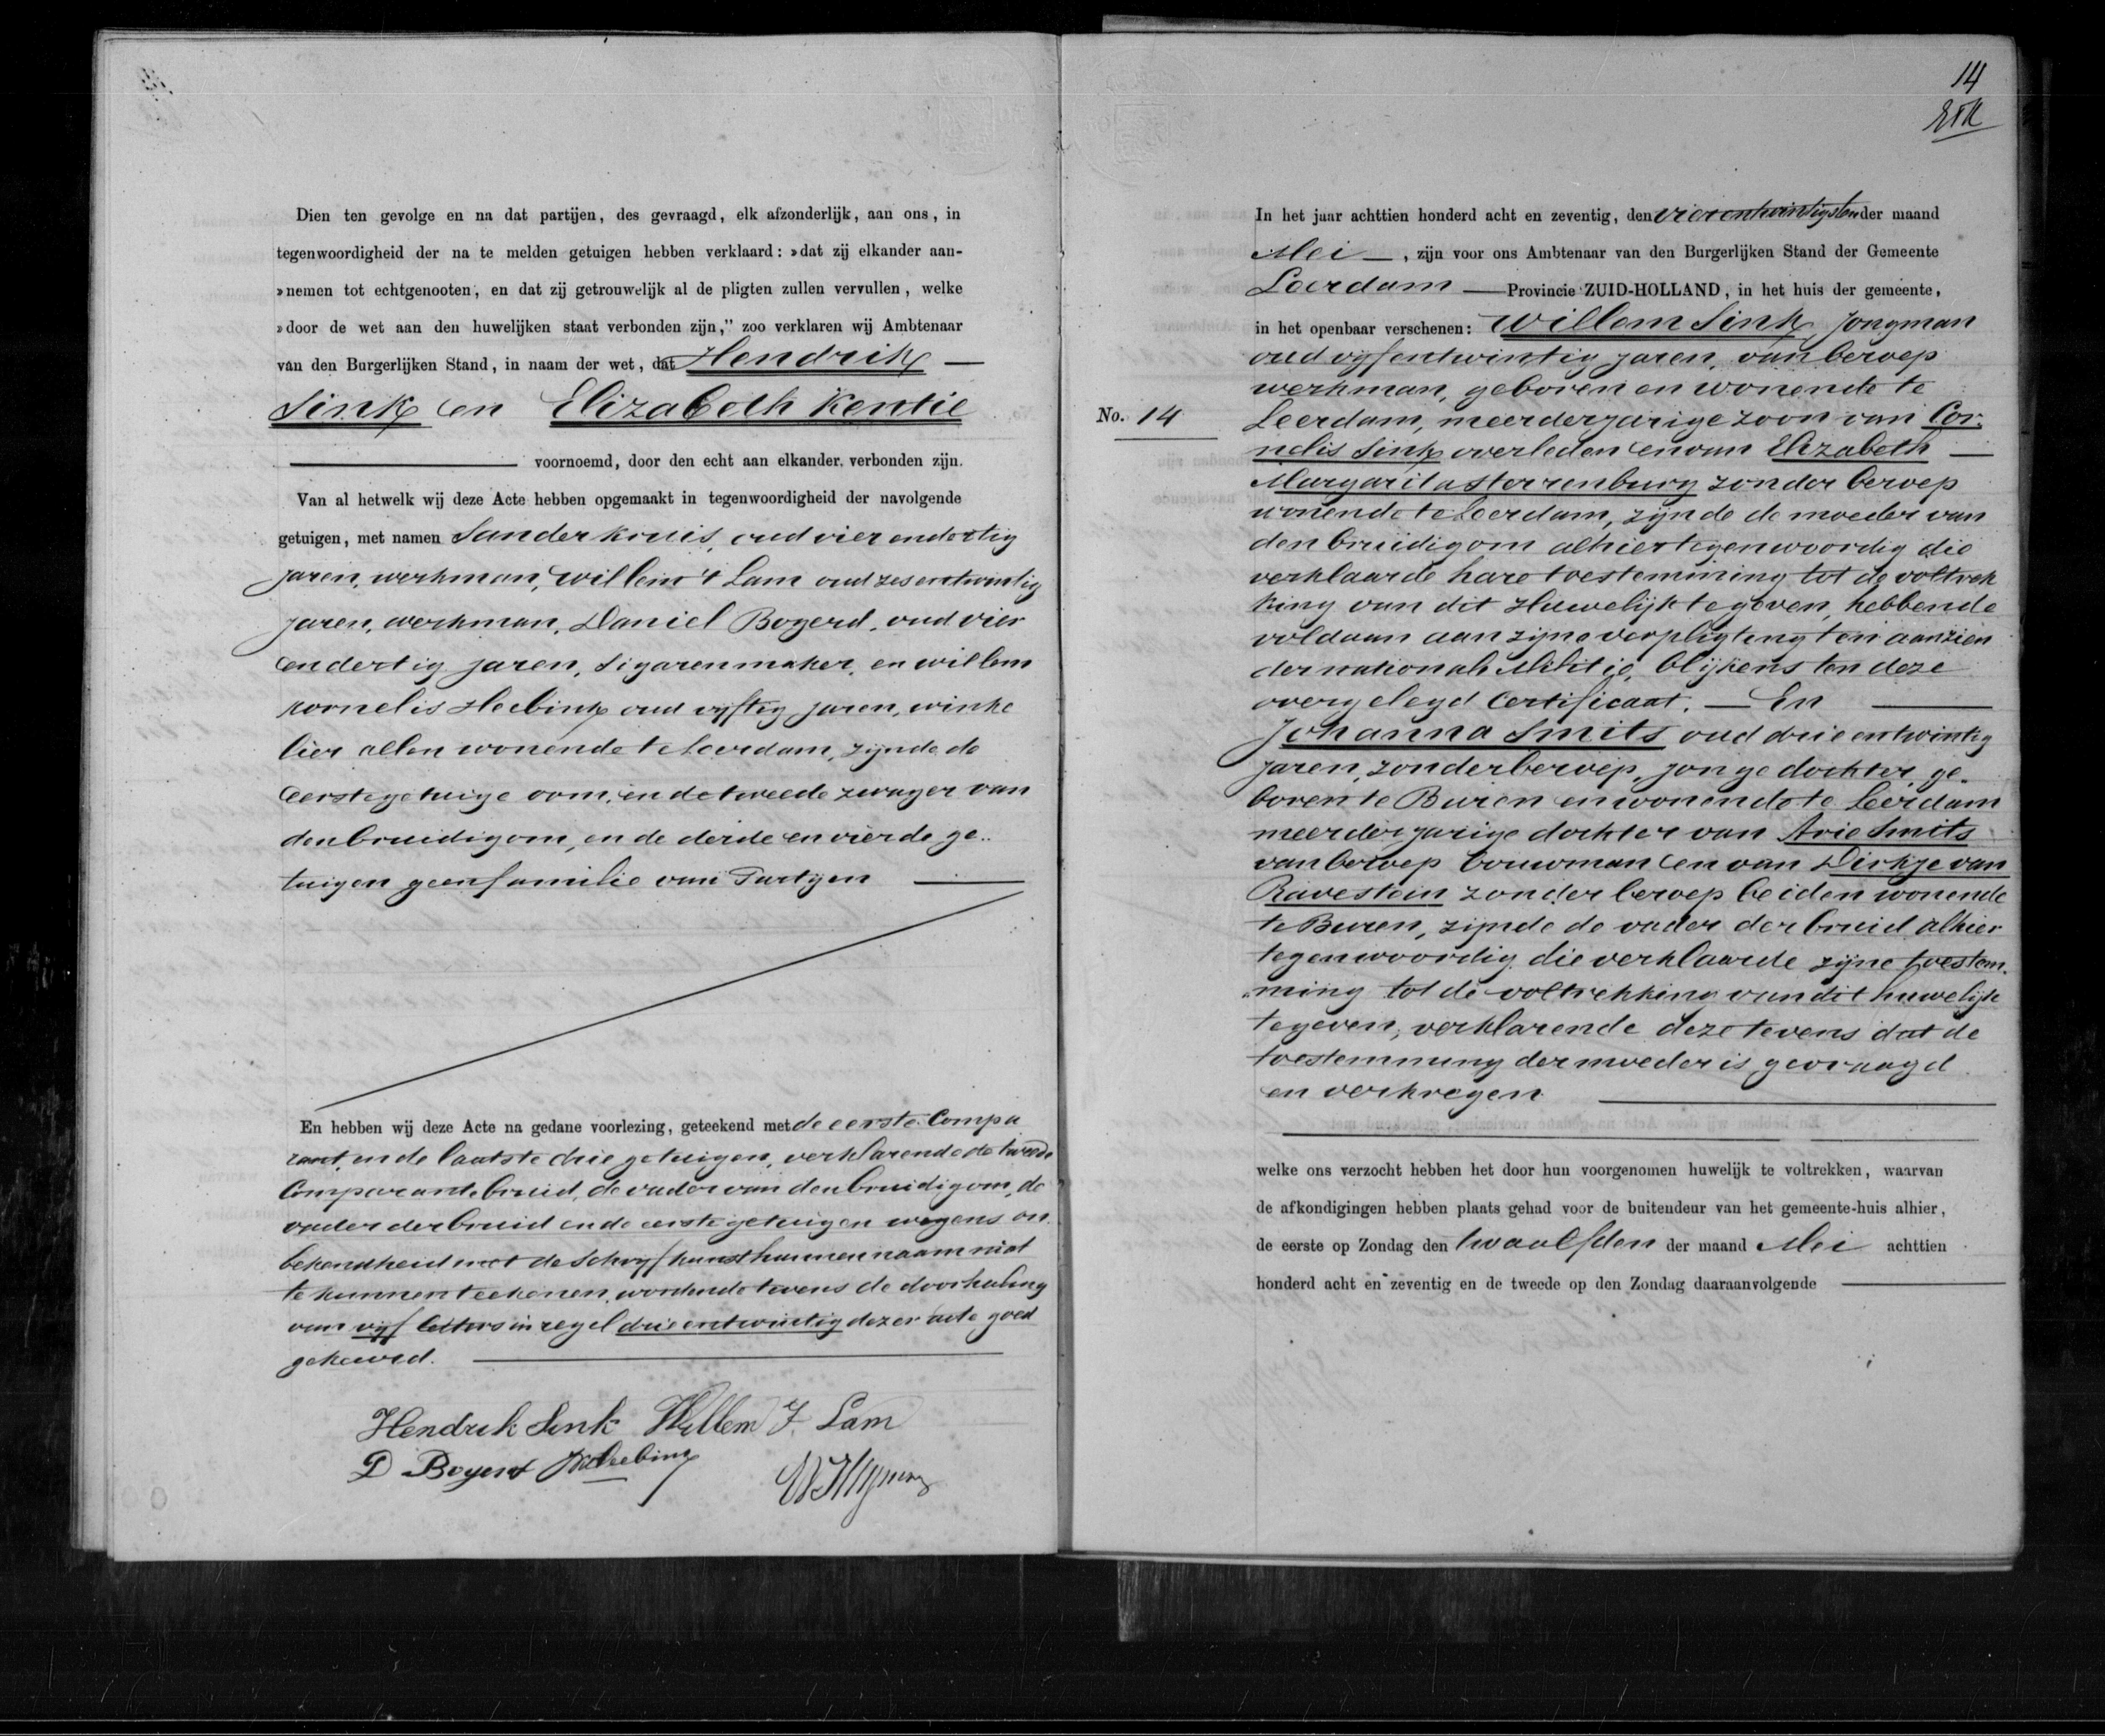 Dien ten gevolge en na dat partijen, des gevraagd, elk afzonderlijk, aan ons, in
tegenwoordigheid der na te melden getuigen hebben verklaard: »dat zij elkander aan-
»nemen tot echtgenooten, en dat zij getrouwelijk al de pligten zullen vervullen, welke
»door de wet aan den huwelijken staat verbonden zijn,” zoo verklaren wij Ambtenaar
van den Burgerlijken Stand, in naam der wet, dat Hendrik
Sink en Elizabeth Kentie
voornoemd, door den echt aan elkander verbonden zijn.
Van al hetwelk wij deze Acte hebben opgemaakt in tegenwoordigheid der navolgende
getuigen, met namen Sander Kruis, oud vier en dertig
jaren, werkman, Willem 't Lam oud zes en twintig
jaren, werkman, Daniel Bogerd, oud vier
en dertig jaren, sigarenmaker, en Willem
Kornelis Heebink oud vyftig jaren, winke
lier allen wonende te Leerdam, zynde de
eerste getuige oom, en de tweede zwager van
den bruidigom, en de derde en vierde ge..
tuigen geen familie van Partyen
En hebben wij deze Acte na gedane voorlezing, geteekend met de eerste Compa
rant, en de laatste drie getuigen, verklarende de tweede
Comparante bruid, de vader van den bruidigom, de
vader der bruid en de eerste getuigen wegens on
bekendheid met de Schryfkunst hunnen naam niet
te kunnen teekenen, wordende tevens de doorhaling
van vyf letters in regel drie en twintig dezer acte goed
gekeurd.
Hendrik Sink Willem 't Lam
D Bogerd WKHeebink
14
In het jaar achttien honderd acht en zeventig, den vierentwintigsten der maand
Mei, zijn voor ons Ambtenaar van den Burgerlijken Stand der Gemeente
Leerdam Provincie ZUID-HOLLAND, in het huis der gemeente,
in het openbaar verschenen: Willem Sink, Jongman
oud vyfentwintig jaren, van beroep
werkman, geboren en wonende te
No. 14
Leerdam, meerderjarige zoon van Cor.
nelis Sink overleden en van Elizabeth
Margarita Sterrenburg zonder beroep
wonende te Leerdam, zynde de moeder van
den bruidigom alhier tegenwoordig die
verklaarde hare toestemming tot de voltrek
king van dit Huwelijk te geven, hebbende
voldaan aan zyne verpligting ten aanzien
der nationale Militie, blykens ten deze
overgelegd Certificaat. En
Johanna Smits oud drie en twintig
jaren, zonder beroep, jonge dochter, ge-
boren te Buren en wonende te Leerdam
meerderjarige dochter van Arie Smits
van beroep bouwman en van Dirkje van
Ravestein zonder beroep beiden wonende
te Buren, zijnde de vader der bruid alhier
tegenwoordig, die verklaarde zijne toestem.
ming tot de voltrekking van dit huwelijk
te geven, verklarende deze tevens dat de
toestemming der moeder is gevraagd
en verkregen
welke ons verzocht hebben het door hun voorgenomen huwelijk te voltrekken, waarvan
de afkondigingen hebben plaats gehad voor de buitendeur van het gemeente-huis alhier,
de eerste op Zondag den twaalfden der maand Mei achttien
honderd acht en zeventig en de tweede op den Zondag daaraanvolgende